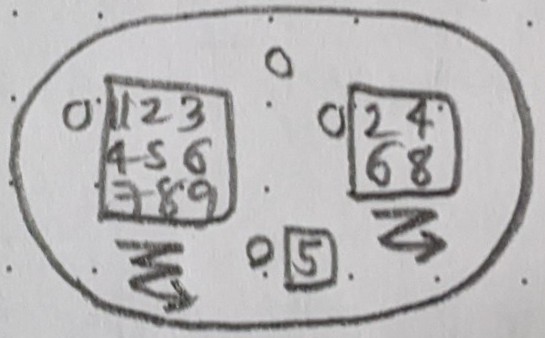 0
0 1 2 3
4 5 6
7 8 9
0 2 4
6 8
0 5